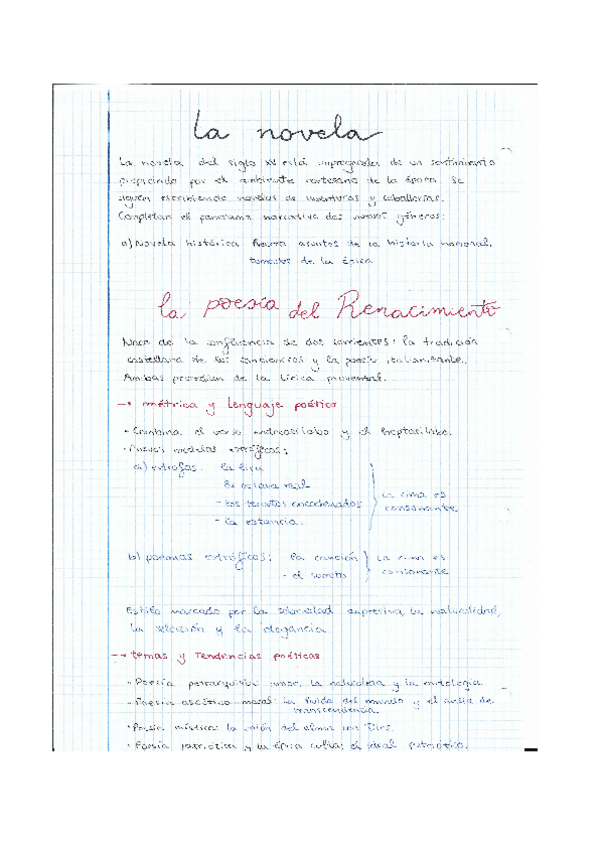 La novela
La novela del siglo XV está impregnada de un sentimiento
propiciado por el ambiente cortesano de la época. Se
siguen escribiendo novelas de aventuras y caballerías.
Completan el panorama narrativo dos nuevos géneros:
a) Novela histórica. asuntos de la historia nacional,
tomados de la épica
la poesía del Renacimiento
Nace de la confluencia de dos corrientes: la tradición
castellana de los cancioneros y la poesía italianizante.
Ambas proceden de la lírica provenzal.
→ métrica y lenguaje poético
- Combina el verso endecasílabo y el heptasílabo.
- Nuevos modelos estróficos:
a) estrofas: la lira
la octava real
- los tercetos encadenados
- la estancia.
La rima es
consonante
b) poemas estróficos: la canción
- el soneto
La rima es
consonante
Estilo marcado por la expresiva, la naturalidad,
la selección y la elegancia
→ temas y Tendencias poéticas
- Poesía petrarquista: amor, la naturaleza y la mitología
- Poesía ascético moral: la huida del mundo y el ansia de
transcendencia.
- Poesía mística: la unión del alma con Dios.
- Poesía patriótica y la épica culta: el ideal patriótico.